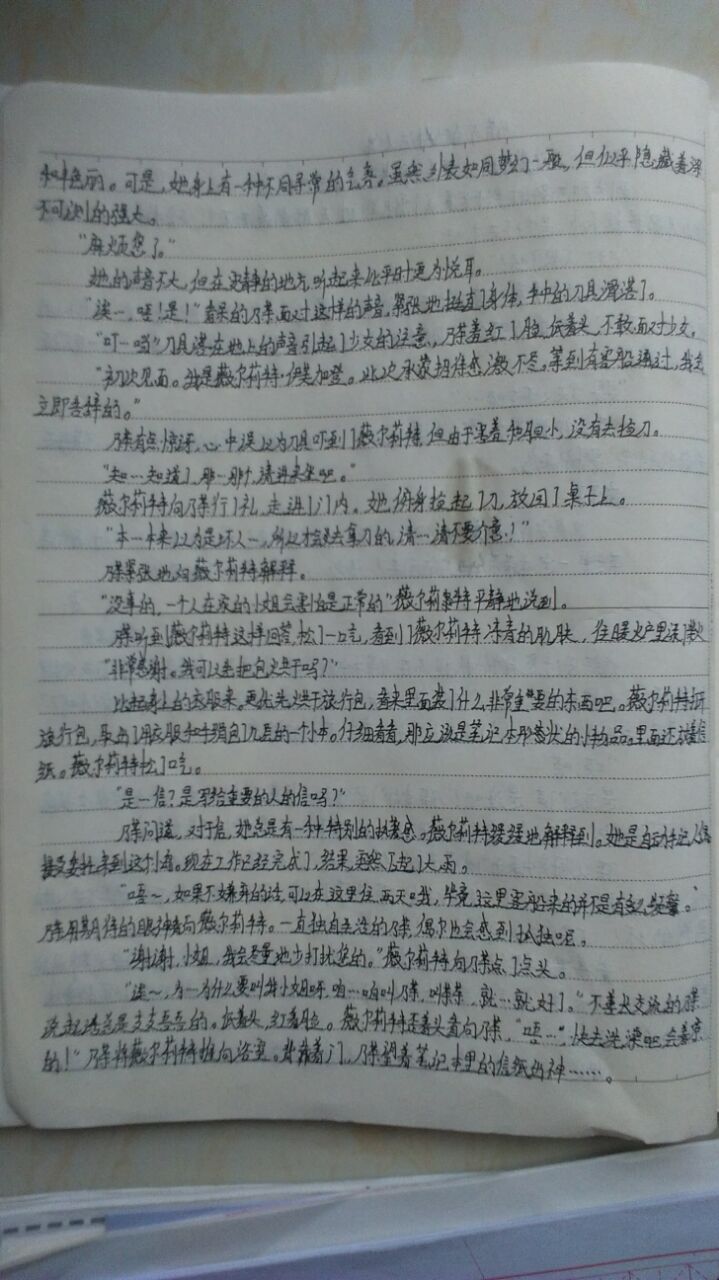 和艳丽。可是，她身上有一种不同寻常的气息。虽然外表如同梦幻一般，但似乎隐藏着深
不可测的强大。
“麻烦您了。”
她的声音不大，但在安静的地方听起来比平时更为悦耳。
“诶…哇！是！”看呆的乃葉面对这样的声音，紧张地挺直了身体，手中的刀具滑落了。
“叮…鸣”刀具落在地上的声音引起了少女的注意，乃葉羞红了脸，低着头，不敢面对少女。
“初次见面。我是薇尔莉特·伊芙加登。此次承蒙招待感激不尽。等到有客船通过，我会
立即告辞的。”
乃葉有点惊讶，心中误以为刀具吓到了薇尔莉特，但由于害羞和胆小，没有去捡刀。
“知…知道了，那…那个，请进来坐吧。”
薇尔莉特向乃葉行了礼，走进了门内。她俯身捡起了刀，放回了桌子上。
“本…本来以为是坏人…，所以才会去拿刀的，请…请不要介意！”
乃葉紧张地向薇尔莉特解释。
“没事的，一个人在家的小姐会害怕是正常的”薇尔莉特平静地说到。
乃葉听到薇尔莉特这样回答，松了一口气，看到了薇尔莉特冻青的肌肤，往暖炉里添
“非常感谢。我可以先把包烘干吗？”
比起身上的衣服来，更优先烘干旅行包，看来里面装了什么非常重要的东西吧。薇尔莉特打开
旅行包，取出了用衣服和手绢包了几层的一个小本。仔细看看，那应该是笔记本形状的小物品。里面还放着信
纸。薇尔莉特松了口气。
“是…信？是写给重要的人的信吗？”
乃葉问道，对于信，她总是有一种特别的执着感。薇尔莉特缓缓地解释到。她是自动手记人偶
接受委托来到这个岛。现在工作已经完成了，结果突然下起了大雨。
“唔～，如果不嫌弃的话，可以在这里住两天哦，毕竟这里客船来的并不是有多么频繁。”
乃葉用期待的眼神看向薇尔莉特。一直独自生活的乃葉，偶尔也会感到孤独吧。
“谢谢，小姐，我会尽量地少打扰您的。”薇尔莉特向乃葉点了点头。
“诶～，为…为什么要叫我小姐呀，咱…咱叫乃葉，叫葉葉，就…就好了。”不善长交流的乃葉
说起话总是支支吾吾的。低着头，红着脸。薇尔莉特歪着头看向乃葉，“唔…”，“快去洗澡吧，会着凉
的！”乃葉将薇尔莉特推向浴室。背靠着门，乃葉望着笔记本里的信纸出神……。